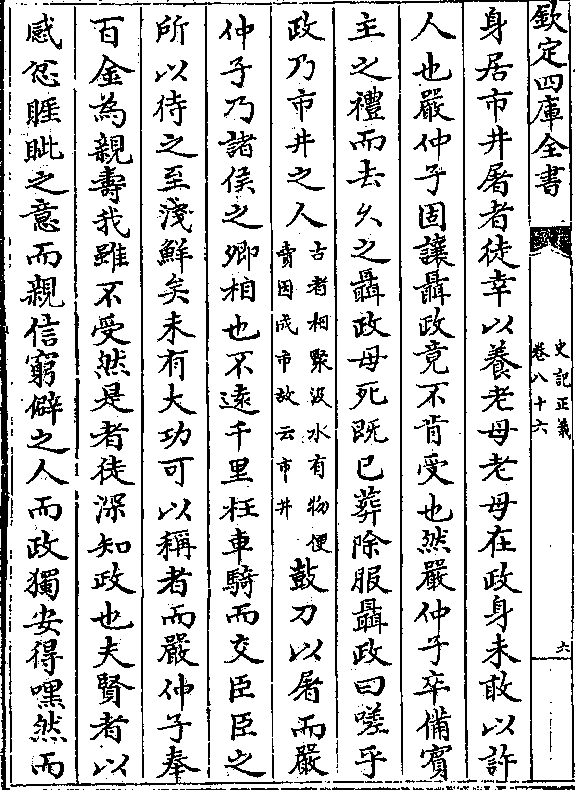 欽定四庫全書
史記正義
卷八十六
六
身居市井屠者徒幸以養老母老母在政身未敢以許
人也嚴仲子固讓聶政竟不肯受也然嚴仲子卒備賓
主之禮而去久之聶政母死既已葬除服聶政曰嗟乎
政乃市井之人古者相聚汲水有物便賣因成市故云市井鼓刀以屠而嚴
仲子乃諸侯之卿相也不逺千里枉車騎而交臣臣之
所以待之至淺鮮矣未有大功可以稱者而嚴仲子奉
百金為親壽我雖不受然是者徒深知政也夫賢者以
感忿睚眦之意而親信窮僻之人而政獨安得嘿然而